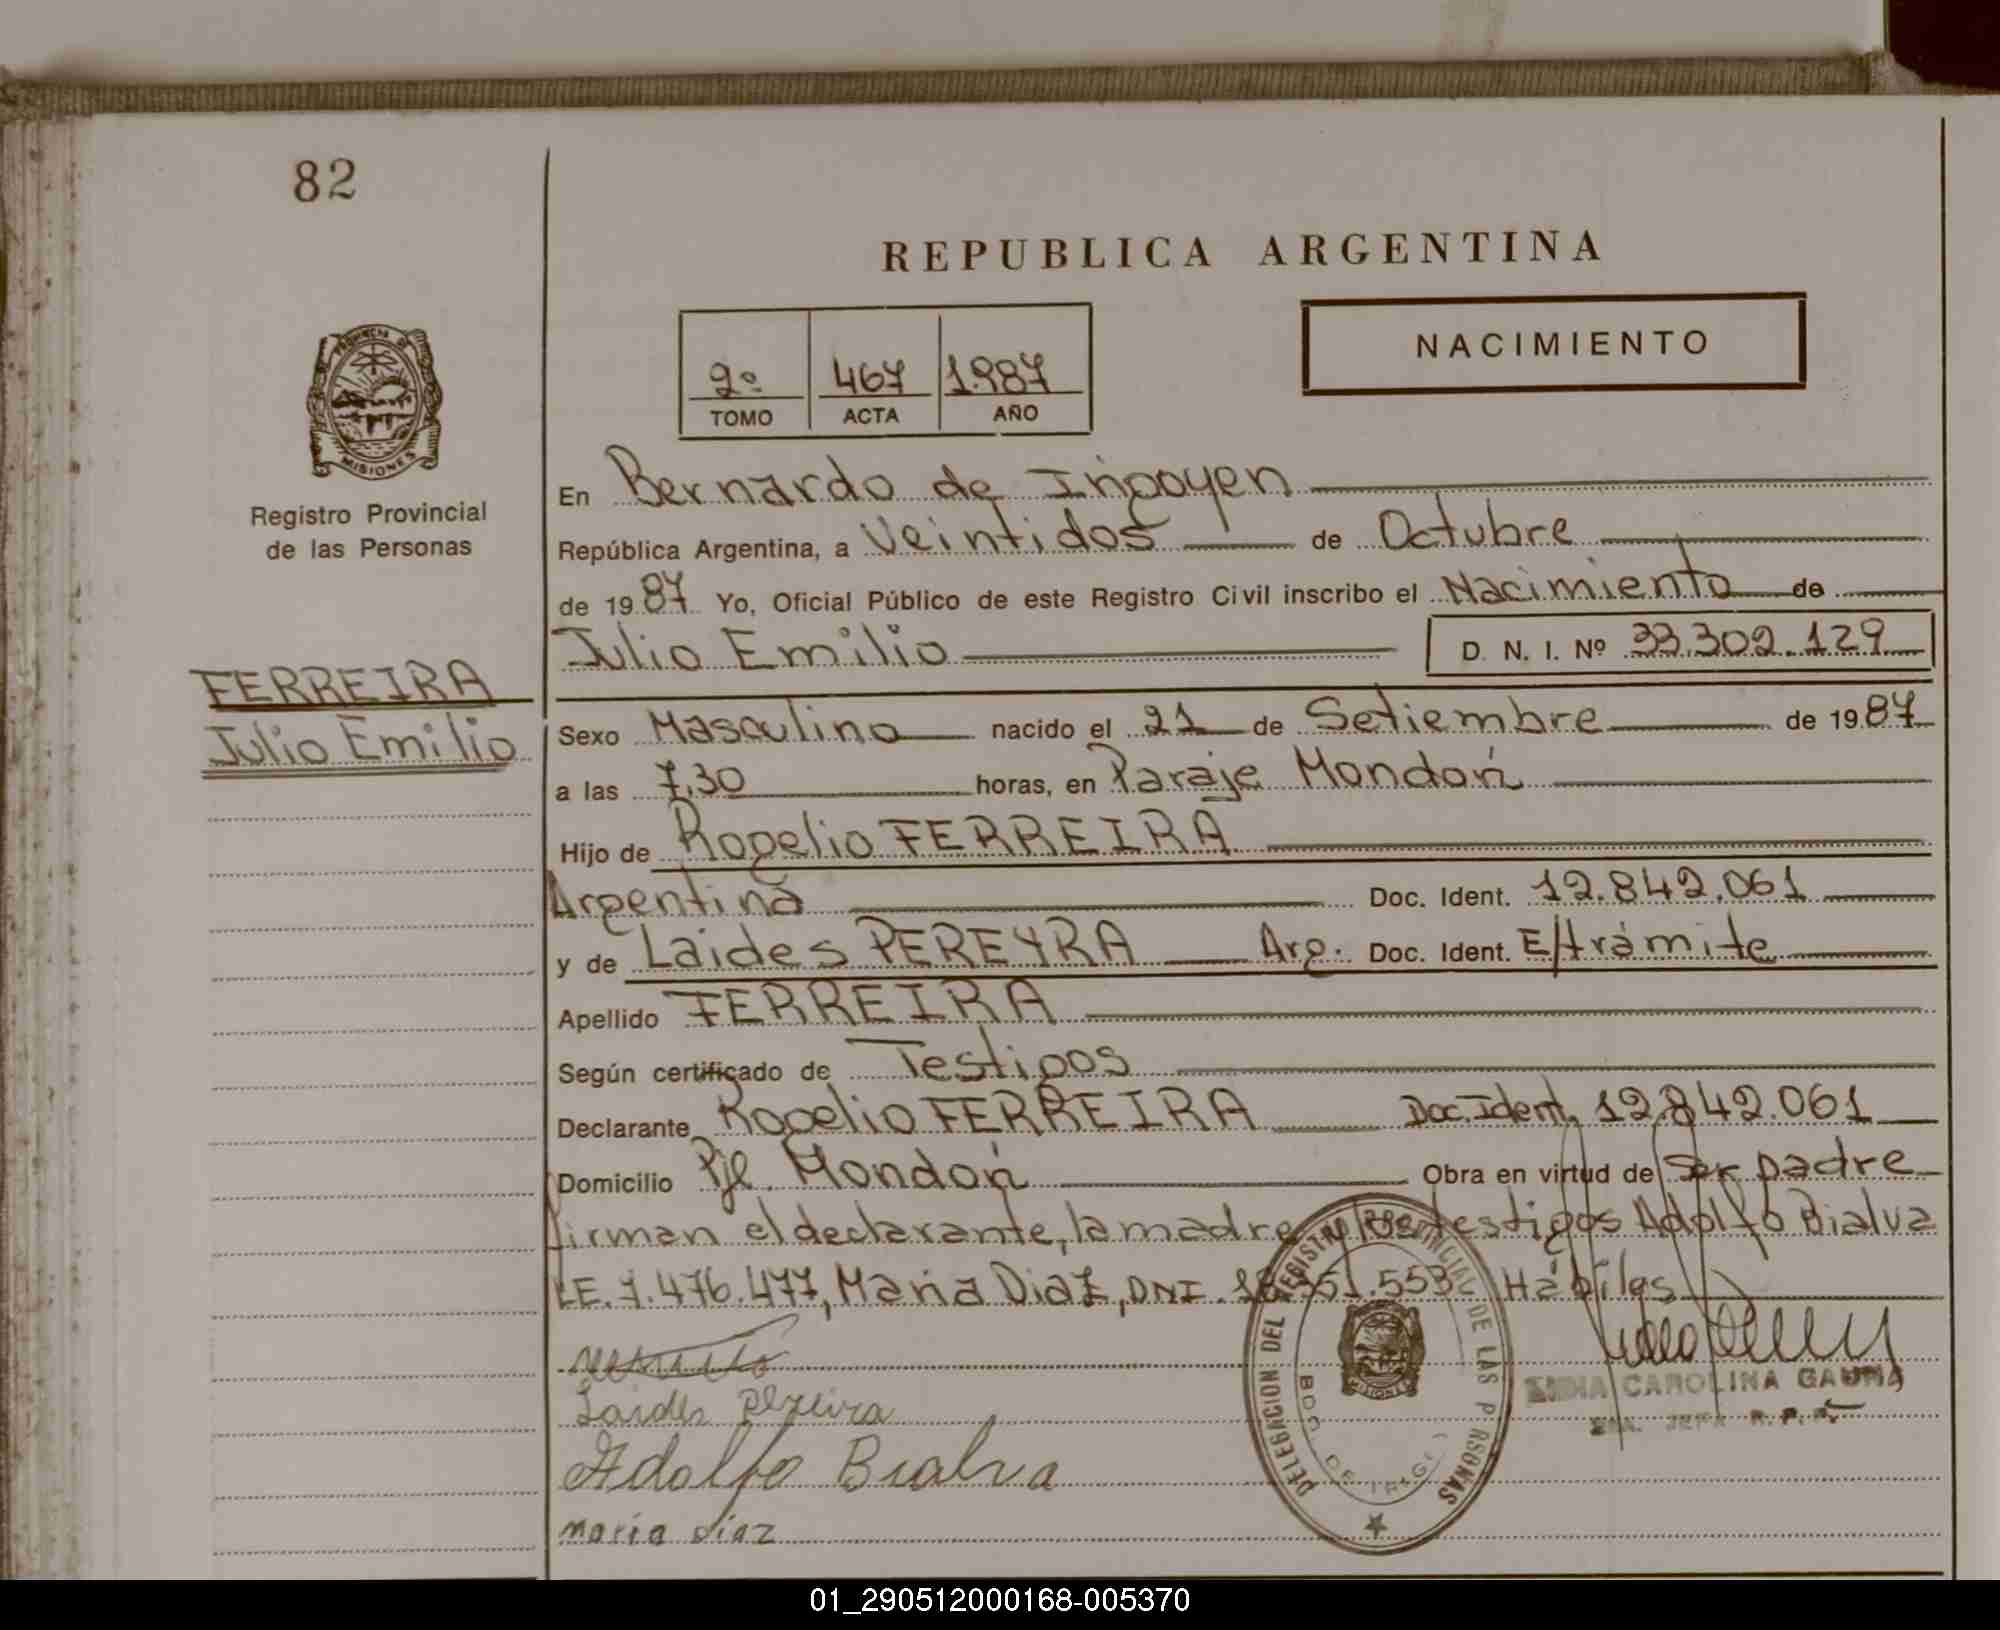 82
REPUBLICA ARGENTINA
NACIMIENTO
2º 467 1.987
TOMO ACTA AÑO
PROVINCIA DE
MISIONES
Registro Provincial
de las Personas
FERREIRA
Julio Emilio
En Bernardo de Irigoyen
República Argentina, a Veintidos de Octubre
de 1987 Yo, Oficial Público de este Registro Civil inscribo el Nacimiento de
Julio Emilio D. N. I. Nº 33.302.129
Sexo Masculino nacido el 21 de Setiembre de 1987
a las 7,30 horas, en Paraje Mondorí
Hijo de Rogelio FERREIRA
Argentina Doc. Ident. 12.842.061
y de Laides PEREYRA Arg. Doc. Ident. E/trámite
Apellido FERREIRA
Según certificado de Testigos
Declarante Rogelio FERREIRA Doc.Ident. 12.842.061
Domicilio Pje. Mondorí Obra en virtud de ser padre
firman el declarante, la madre testigos Adolfo Bialva
LE. 7.476.477, María Diaz, DNI. Hábiles
Laides Pereira
Adolfo Bialva
maria diaz
DELEGACION DEL REGISTRO PROVINCIAL DE LAS PERSONAS
MISIONES
BDO. DE IRIGOYEN
CAROLINA GAUNA
JEFA R.P.P.
01_290512000168-005370